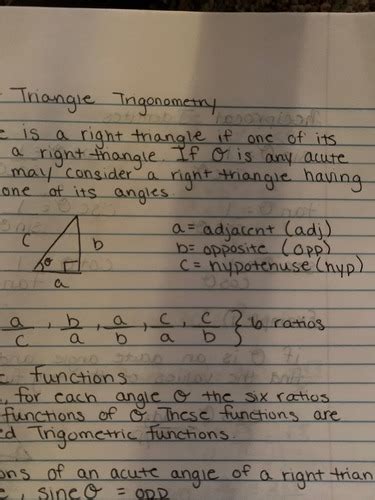 Triangle Trigonometry
is a right triangle if one of its
a right thangle. If θ is any acute
may consider a right triangle having
one of its angles.
a = adjacent (adj)
b = opposite (opp)
c = hypotenuse (hyp)
c b
θ
a
a/c , b/a , a/b , c/a , c/b } 6 ratios
functions
, for each angle θ the six ratios
functions of θ. These functions are
Trigometric functions.
of an acute angle of a right
, sine θ = opp